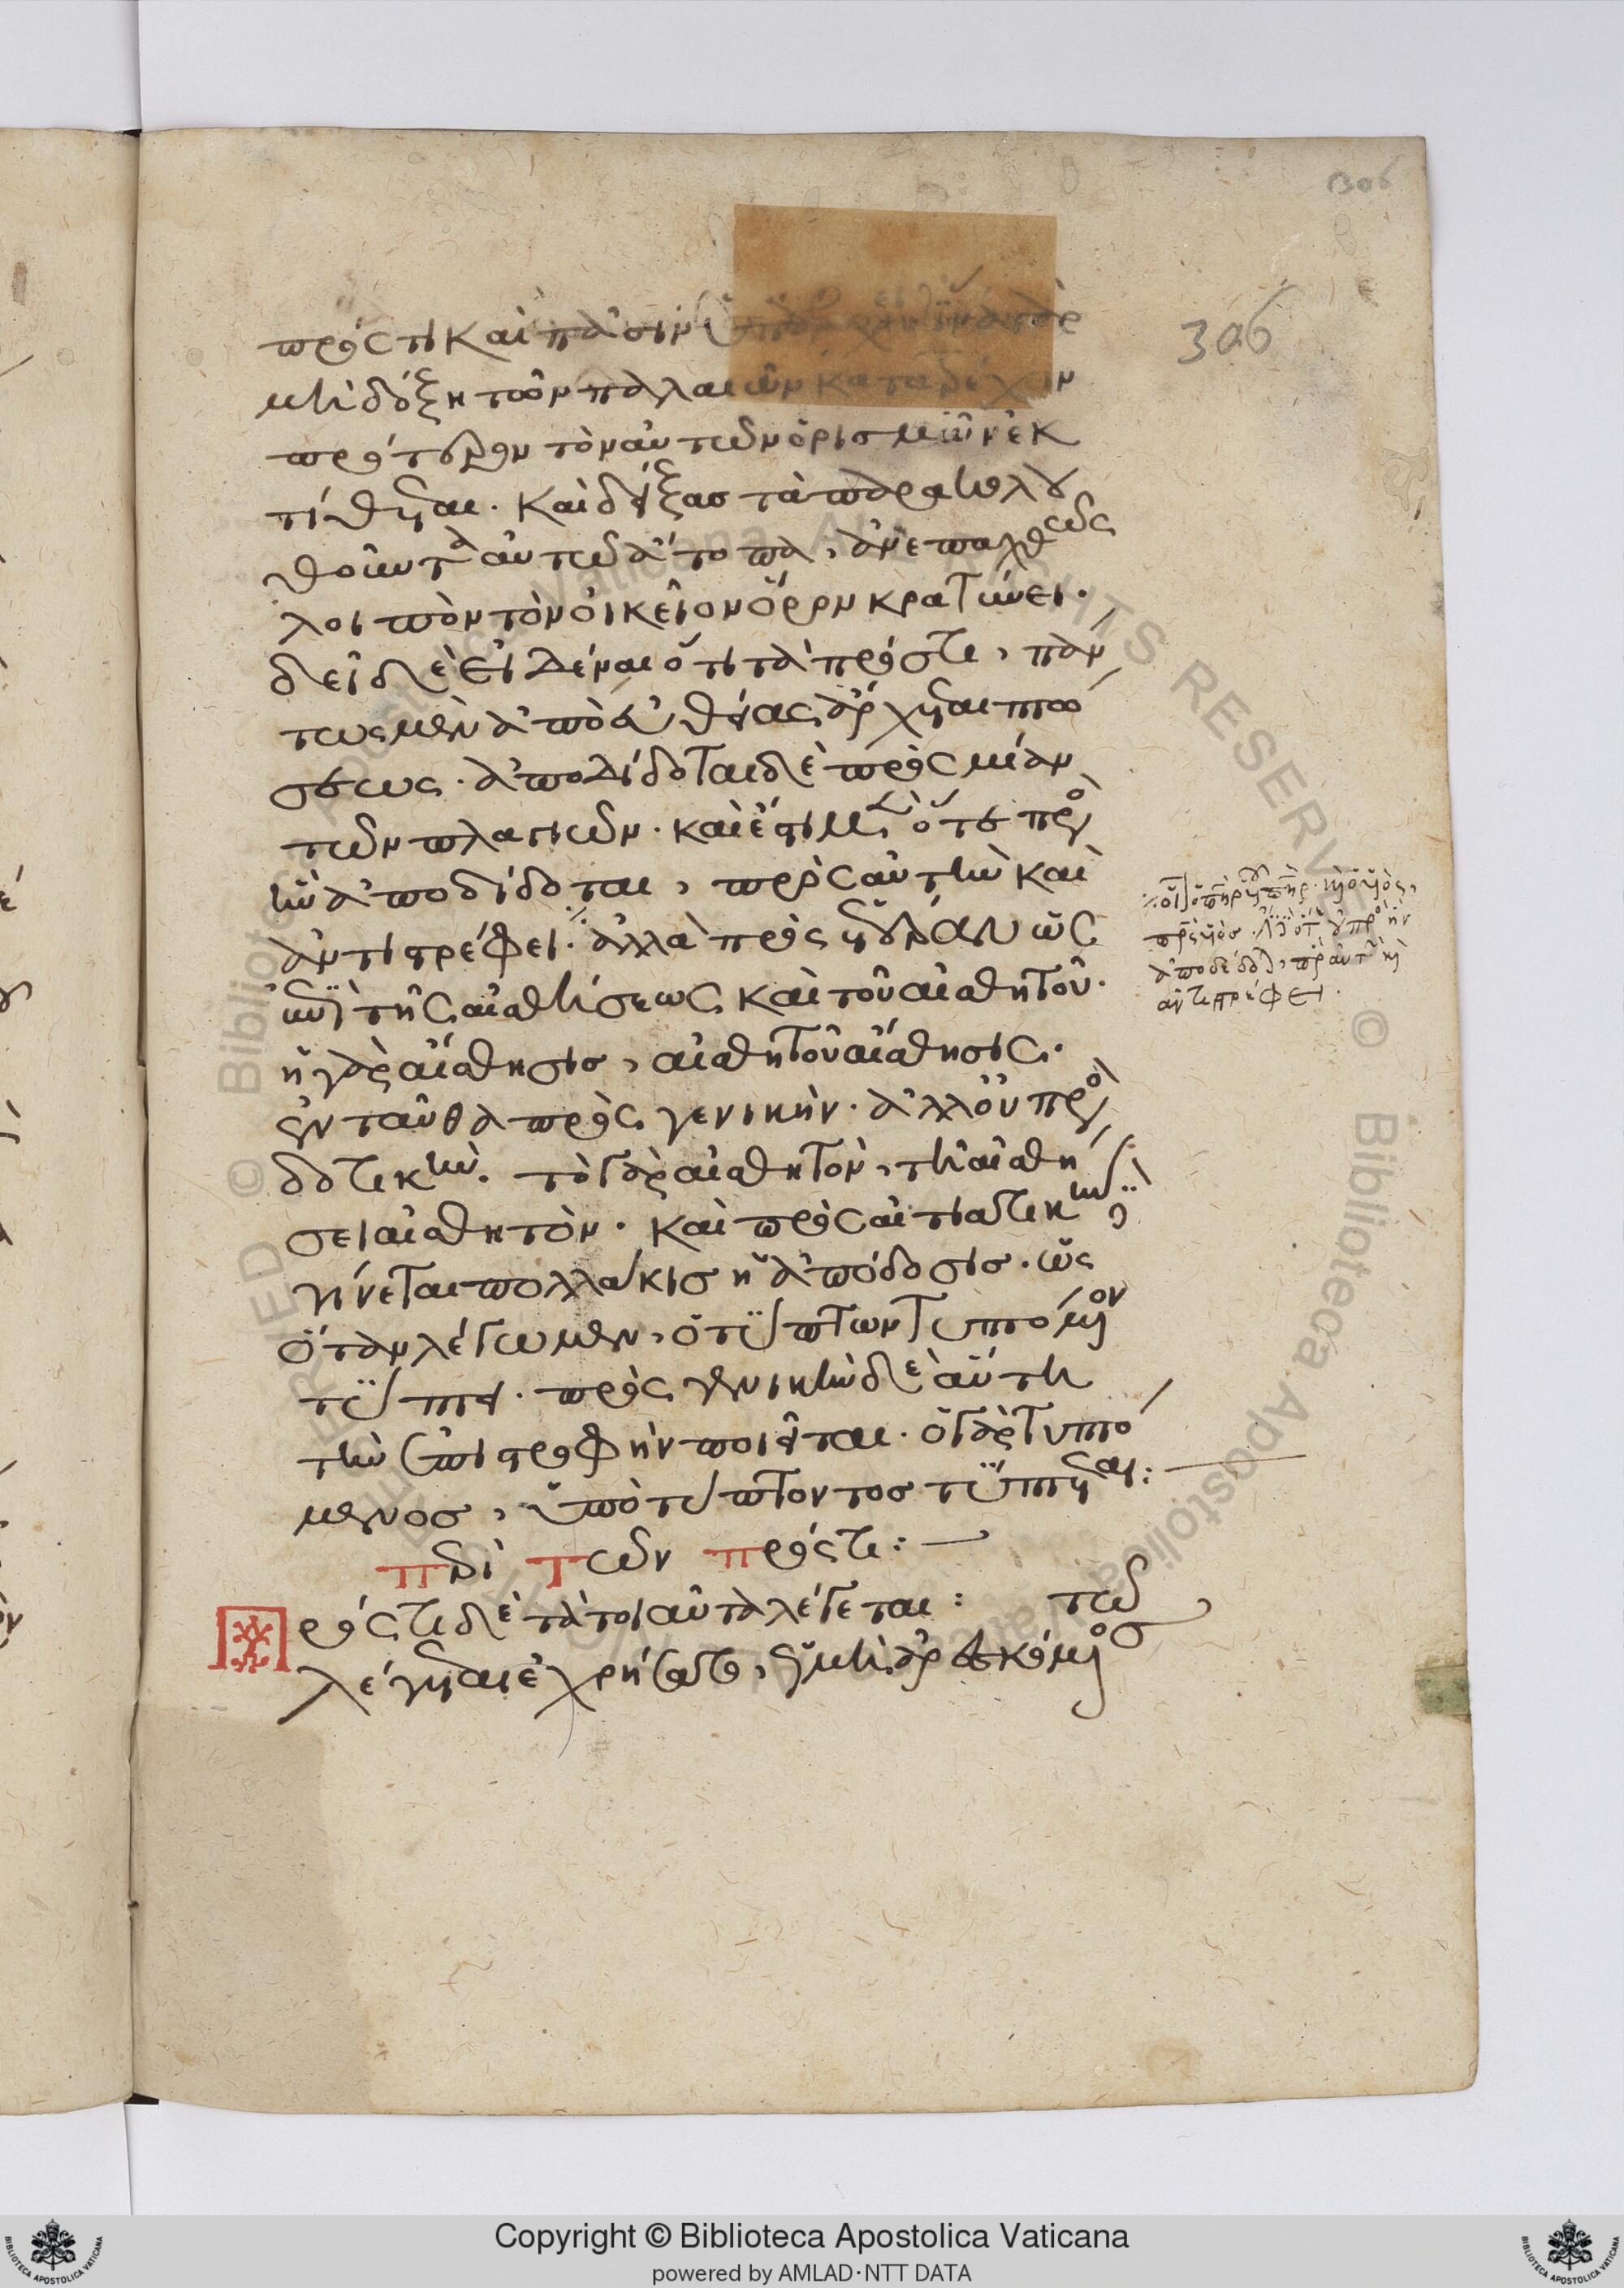 306
306
πρός τι καὶ πᾶσιν
μὴ δόξη τῶν παλαιῶν κατατρέχειν
πρότερον τὸν αὐτῶν ὁρισμὸν ἐκ
τίθεται. καὶ δείξας τὰ παρακολου
θοῦντα αὐτῶ ἄτοπα, ἀνεπαχθῶς
λοιπὸν τὸν οἰκεῖον ὅρον κρατύνει.
δεῖ δὲ εἰδέναι ὅτι τὰ πρός τι, πάν
τως μὲν ἀπὸ εὐθείας ἄρχεται πτώ
σεως. ἀποδίδοται δὲ πρὸς μίαν
τῶν πλαγίων. καὶ ἔστι μὲν ὅτε πρὸς
ἣν ἀποδίδοται, πρὸς αὐτὴν καὶ
ἀντιστρέφει. ἀλλὰ πρὸς ἑτέραν ὡς
ἐπὶ τῆς αἰσθήσεως καὶ τοῦ αἰσθητοῦ.
ἡ γὰρ αἴσθησις, αἰσθητοῦ αἴσθησις.
ἐνταῦθα πρὸς γενικήν. ἀλλ' οὐ πρὸς
δοτικήν. τὸ γὰρ αἰσθητὸν, τῆ αἰσθή
σει αἰσθητόν. καὶ πρὸς αἰτιατικὴν
γίνεται πολλάκις ἡ ἀπόδοσις. ὡς
ὅταν λέγωμεν, ὁ τύπτων τυπτόμενον
τύπτει. πρὸς γενικὴν δὲ αὕτη
τὴν ἐπιστροφὴν ποιεῖται. ὁ γὰρ τυπτό
μενος, ὑπὸ τύπτοντος τύπτεται:
περὶ τῶν πρός τι:
Πρός τι δὲ τὰ τοιαῦτα λέγεται: τῶ
λέγεται ἐχρήσατο, μὴ ἀρεσκόμενος
πρὸς
ἀποδίδοται, πρὸς αὐτὴν καὶ
ἀντιστρέφει.
Copyright © Biblioteca Apostolica Vaticana
powered by AMLAD·NTT DATA